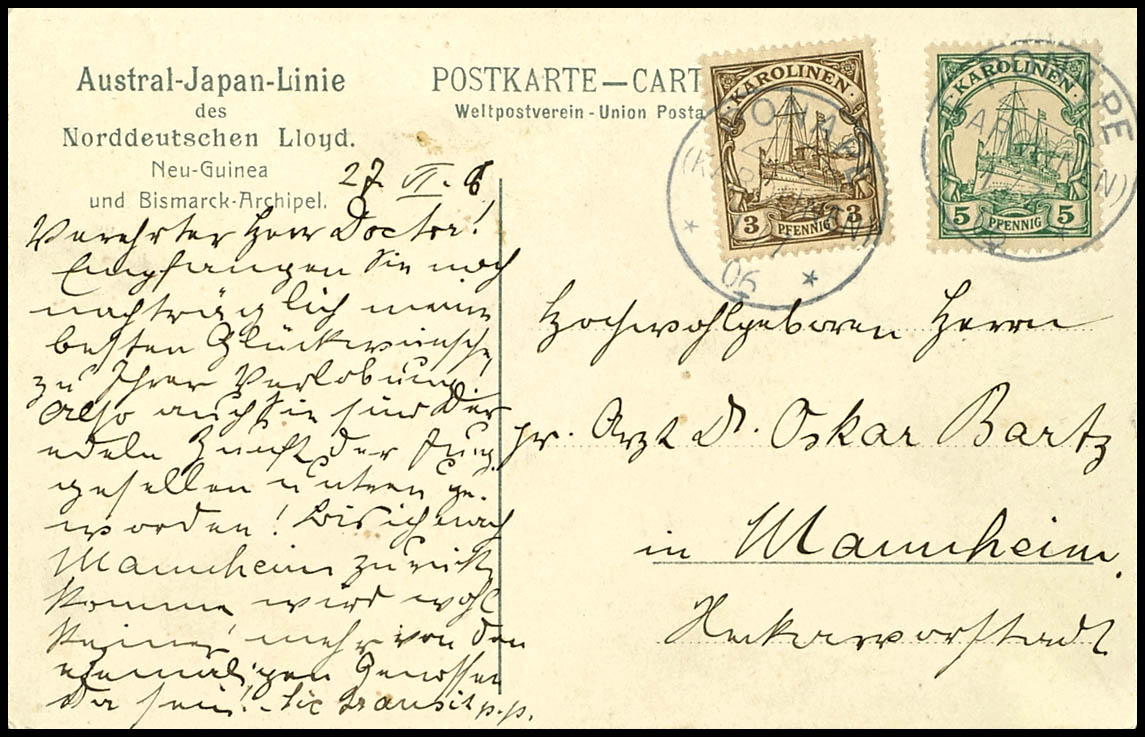 Austral-Japan-Linie
des
Norddeutschen Lloyd.
Neu-Guinea
und Bismarck-Archipel.
POSTKARTE — CART
Weltpostverein - Union Posta
KAROLINEN
3 PFENNIG 3
KAROLINEN
5 PFENNIG 5
06
27. VI. 6
Verehrter Herr Doctor!
Empfangen Sie noch
nachträglich meine
besten Glückwünsche
zu Ihrer Verlobung.
Also auch Sie sind der
edeln Zunft der Jung
gesellen untreu ge-
worden! Bis ich nach
Mannheim zurück
komme wird wohl
keiner mehr von den
ehemaligen Genossen
da sein! Sic transit p.p.
Hochwohlgeboren Herrn
pr. Arzt Dr. Oskar Bartz
in Mannheim.
Neckarvorstadt